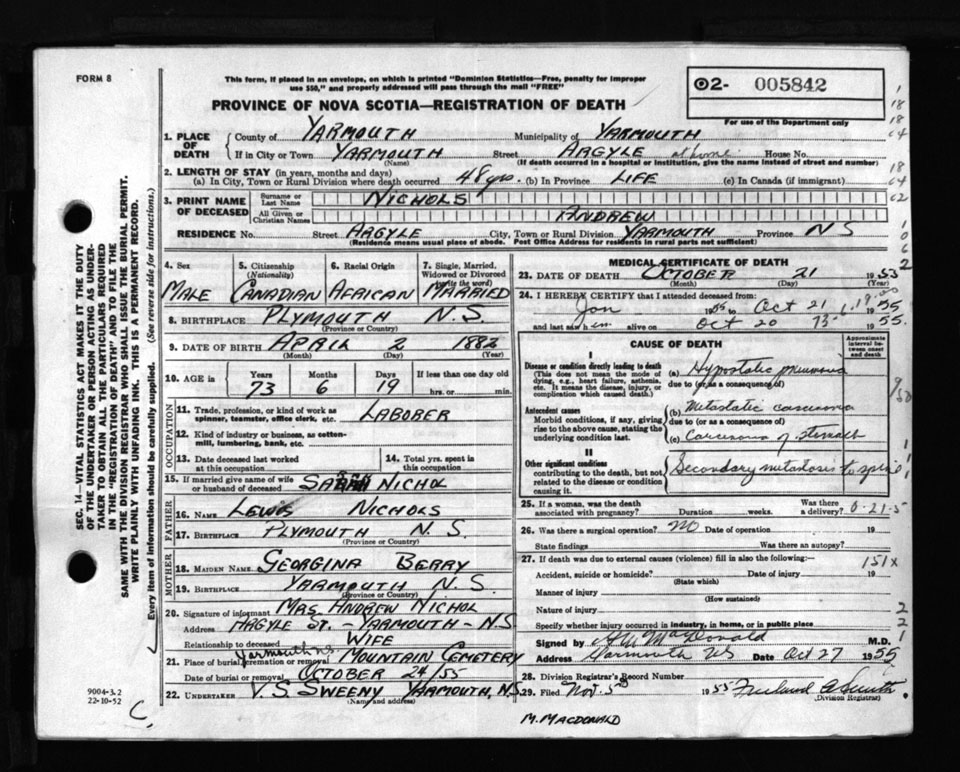 FORM 8
This form, if placed in an envelope, on which is printed "Dominion Statistics—Free, penalty for improper
use $50," and properly addressed will pass through the mail "FREE"
PROVINCE OF NOVA SCOTIA—REGISTRATION OF DEATH
02- 005842
For use of the Department only
1. PLACE OF DEATH
County of YARMOUTH Municipality of YARMOUTH
If in City or Town YARMOUTH Street ARGYLE at home House No.
(Name) (If death occurred in a hospital or institution, give the name instead of street and number)
2. LENGTH OF STAY (in years, months and days)
(a) In City, Town or Rural Division where death occurred 48 yrs. (b) In Province LIFE (c) In Canada (if immigrant)
3. PRINT NAME OF DECEASED
Surname or Last Name NICHOLS
All Given or Christian Names ANDREW
RESIDENCE No. Street ARGYLE City, Town or Rural Division YARMOUTH Province N S
(Residence means usual place of abode. Post Office Address for residents in rural parts not sufficient)
4. Sex MALE
5. Citizenship (Nationality) CANADIAN
6. Racial Origin AFRICAN
7. Single, Married, Widowed or Divorced (write the word) MARRIED
8. BIRTHPLACE PLYMOUTH N.S.
(Province or Country)
9. DATE OF BIRTH APRIL 2 1882
(Month) (Day) (Year)
10. AGE in Years Months Days If less than one day old
73 6 19 hrs. or min.
OCCUPATION
11. Trade, profession, or kind of work as
spinner, teamster, office clerk, etc. LABOBER
12. Kind of industry or business, as cotton-
mill, lumbering, bank, etc.
13. Date deceased last worked
at this occupation
14. Total yrs. spent in
this occupation
15. If married give name of wife
or husband of deceased NICHOL
FATHER
16. NAME LEWIS NICHOLS
17. BIRTHPLACE PLYMOUTH N.S.
(Province or Country)
MOTHER
18. MAIDEN NAME GEORGINA BERRY
19. BIRTHPLACE YARMOUTH N.S.
(Province or Country)
20. Signature of informant MRS. ANDREW NICHOL
Address ARGYLE ST. - YARMOUTH - N.S
Relationship to deceased WIFE
21. Place of burial, cremation or removal Yarmouth N.S. MOUNTAIN CEMETERY
Date of burial or removal OCTOBER 24/55
22. UNDERTAKER V.S. SWEENY YARMOUTH, N.S
(Name and address)
MEDICAL CERTIFICATE OF DEATH
23. DATE OF DEATH OCTOBER 21 1953
(Month) (Day) (Year)
24. I HEREBY CERTIFY that I attended deceased from:
Jan 1955 to Oct 21 1955
and last saw him alive on Oct 20 1955.
CAUSE OF DEATH
Approximate interval between onset and death
I
Disease or condition directly leading to death
(This does not mean the mode of dying, e.g., heart failure, asthenia, etc. It means the disease, injury, or complication which caused death.)
(a) Hypostatic pneumonia
due to (or as a consequence of)
Antecedent causes
Morbid conditions, if any, giving rise to the above cause, stating the underlying condition last.
(b) Metastatic carcinoma
due to (or as a consequence of)
(c) Carcinoma of stomach
II
Other significant conditions
contributing to the death, but not related to the disease or condition causing it.
Secondary metastasis to spine
25. If a woman, was the death
associated with pregnancy? Duration weeks. Was there a delivery?
26. Was there a surgical operation? No Date of operation 19
State findings Was there an autopsy?
27. If death was due to external causes (violence) fill in also the following:—
151X
Accident, suicide or homicide? Date of injury 19
(State which)
Manner of injury
(How sustained)
Nature of injury
Specify whether injury occurred in industry, in home, or in public place
Signed by MacDonald M.D.
Address Yarmouth NS Date Oct 27 1955
28. Division Registrar's Record Number
29. Filed Nov. 5th 1955
(Division Registrar)
M. MACDONALD
SEC. 14—VITAL STATISTICS ACT MAKES IT THE DUTY
OF THE UNDERTAKER OR PERSON ACTING AS UNDER-
TAKER TO OBTAIN ALL THE PARTICULARS REQUIRED
IN THE "REGISTRATION OF DEATH" AND TO FILE THE
SAME WITH THE DIVISION REGISTRAR WHO SHALL ISSUE THE BURIAL PERMIT.
WRITE PLAINLY WITH UNFADING INK. THIS IS A PERMANENT RECORD.
Every item of information should be carefully supplied. (See reverse side for instructions.)
9004-3.2
22-10-52
C.